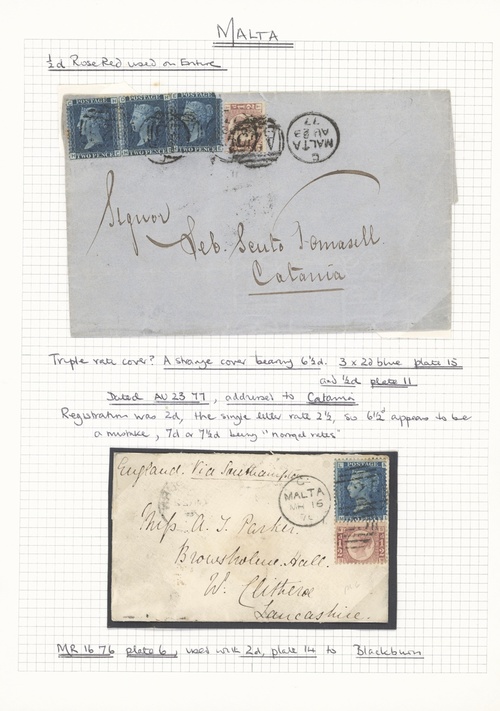 MALTA
½d Rose Red used on Entire
POSTAGE POSTAGE POSTAGE
TWO PENCE TWO PENCE TWO PENCE
C
MALTA
AU 23
77
Signor
Seb. Scuto Tomaselli
Catania
Triple rate cover? A strange cover bearing 6½d. 3 x 2d blue plate 15
and ½d plate 11
Dated AU 23 77, addressed to Catania
Registration was 2d, the single letter rate 2½, so 6½d appears to be
a mistake, 7d or 7½d being "normal rates"
England. Via Southampton
MALTA
MR 16
76
Miss A. J. Parker.
Browsholme Hall.
W. Clitheroe
Lancashire.
MR 16 76 plate 6, used with 2d, plate 14 to Blackburn